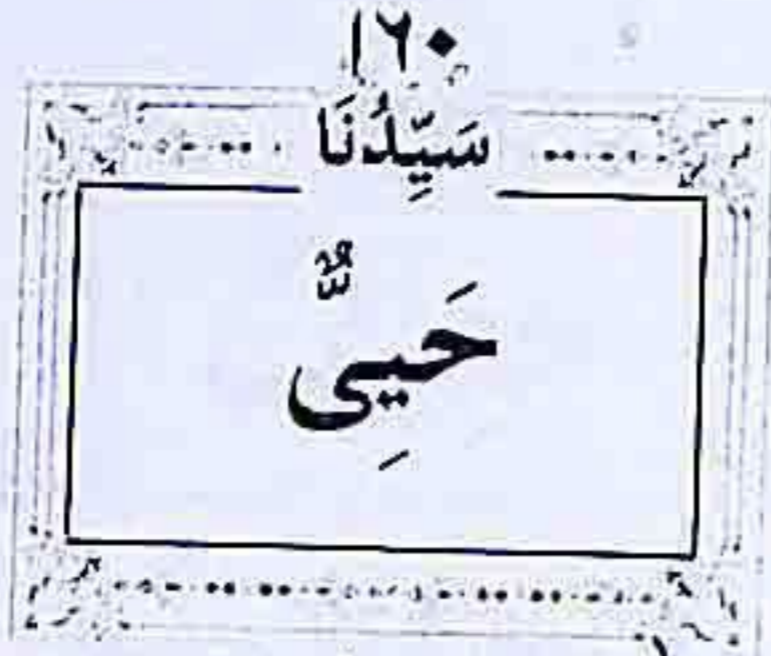 ۱۶۰
سَيِّدُنَا
حَيِيٌّ